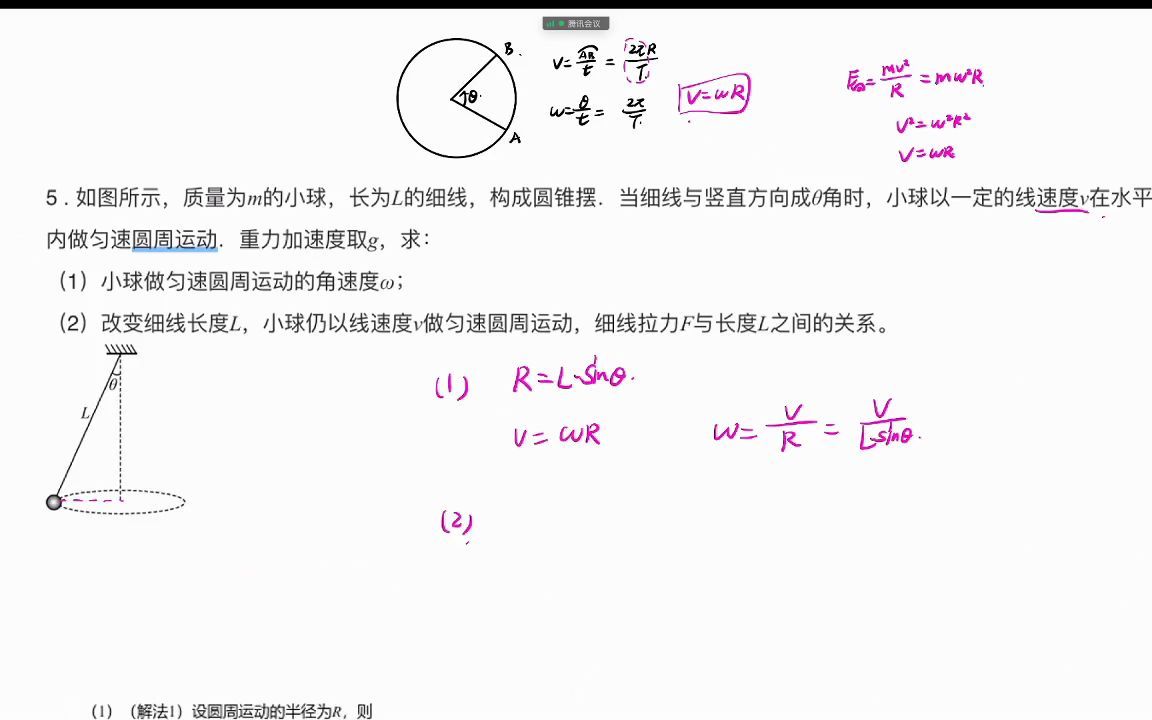 腾讯会议
B
θ
A
V = AB/t = 2πR/T
ω = θ/t = 2π/T
V = ωR
= mv²/R = mω²R
V² = ω²R²
V = ωR
5．如图所示，质量为m的小球，长为L的细线，构成圆锥摆．当细线与竖直方向成θ角时，小球以一定的线速度v在水平
内做匀速圆周运动．重力加速度取g，求：
（1）小球做匀速圆周运动的角速度ω；
（2）改变细线长度L，小球仍以线速度v做匀速圆周运动，细线拉力F与长度L之间的关系。
θ
L
(1) R = L·sinθ.
V = ωR ω = V/R = V/L·sinθ.
(2)
（1）（解法1）设圆周运动的半径为R，则